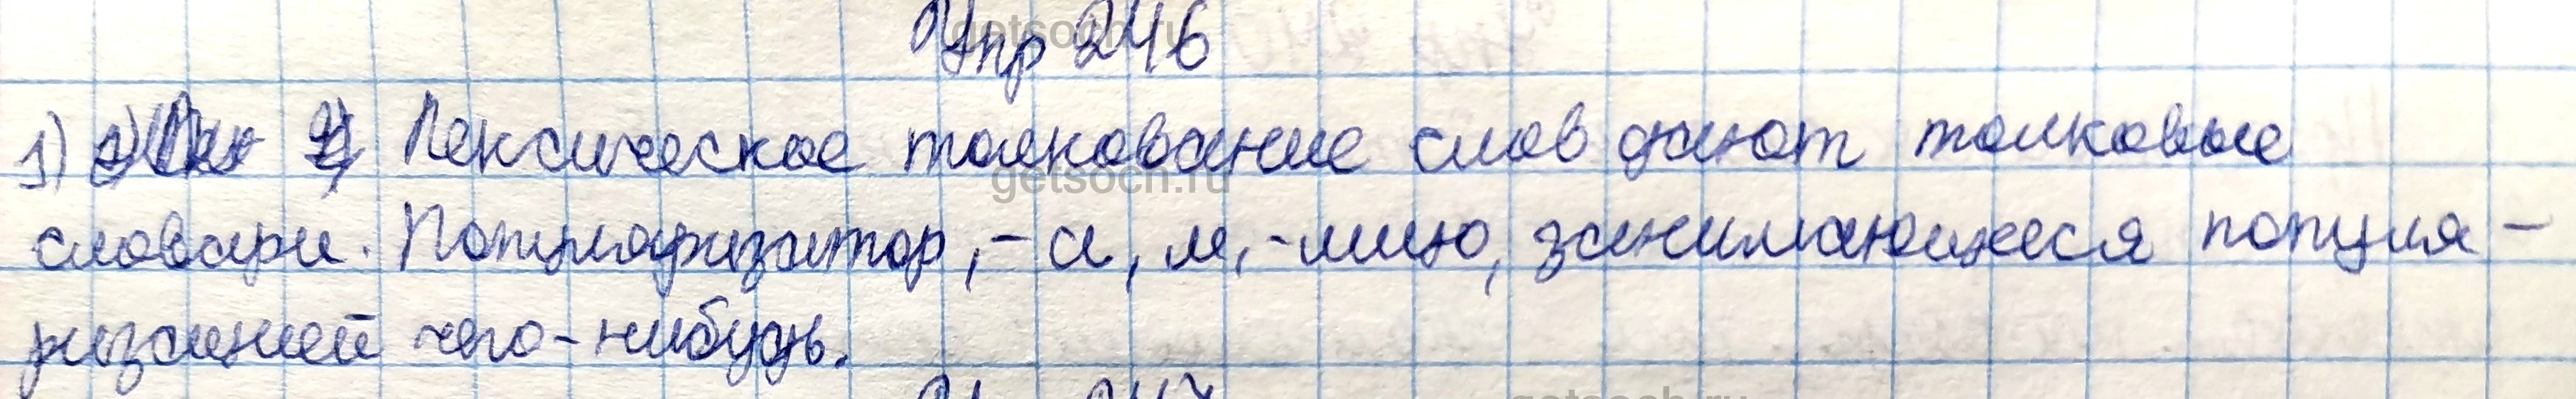 Упр 246
1) Лексическое толкование слов дают толковые
словари. Популяризатор, -а, м, -лицо, занимающееся популя-
ризацией чего-нибудь.
getsoch.ru
getsoch.ru
getsoch.ru